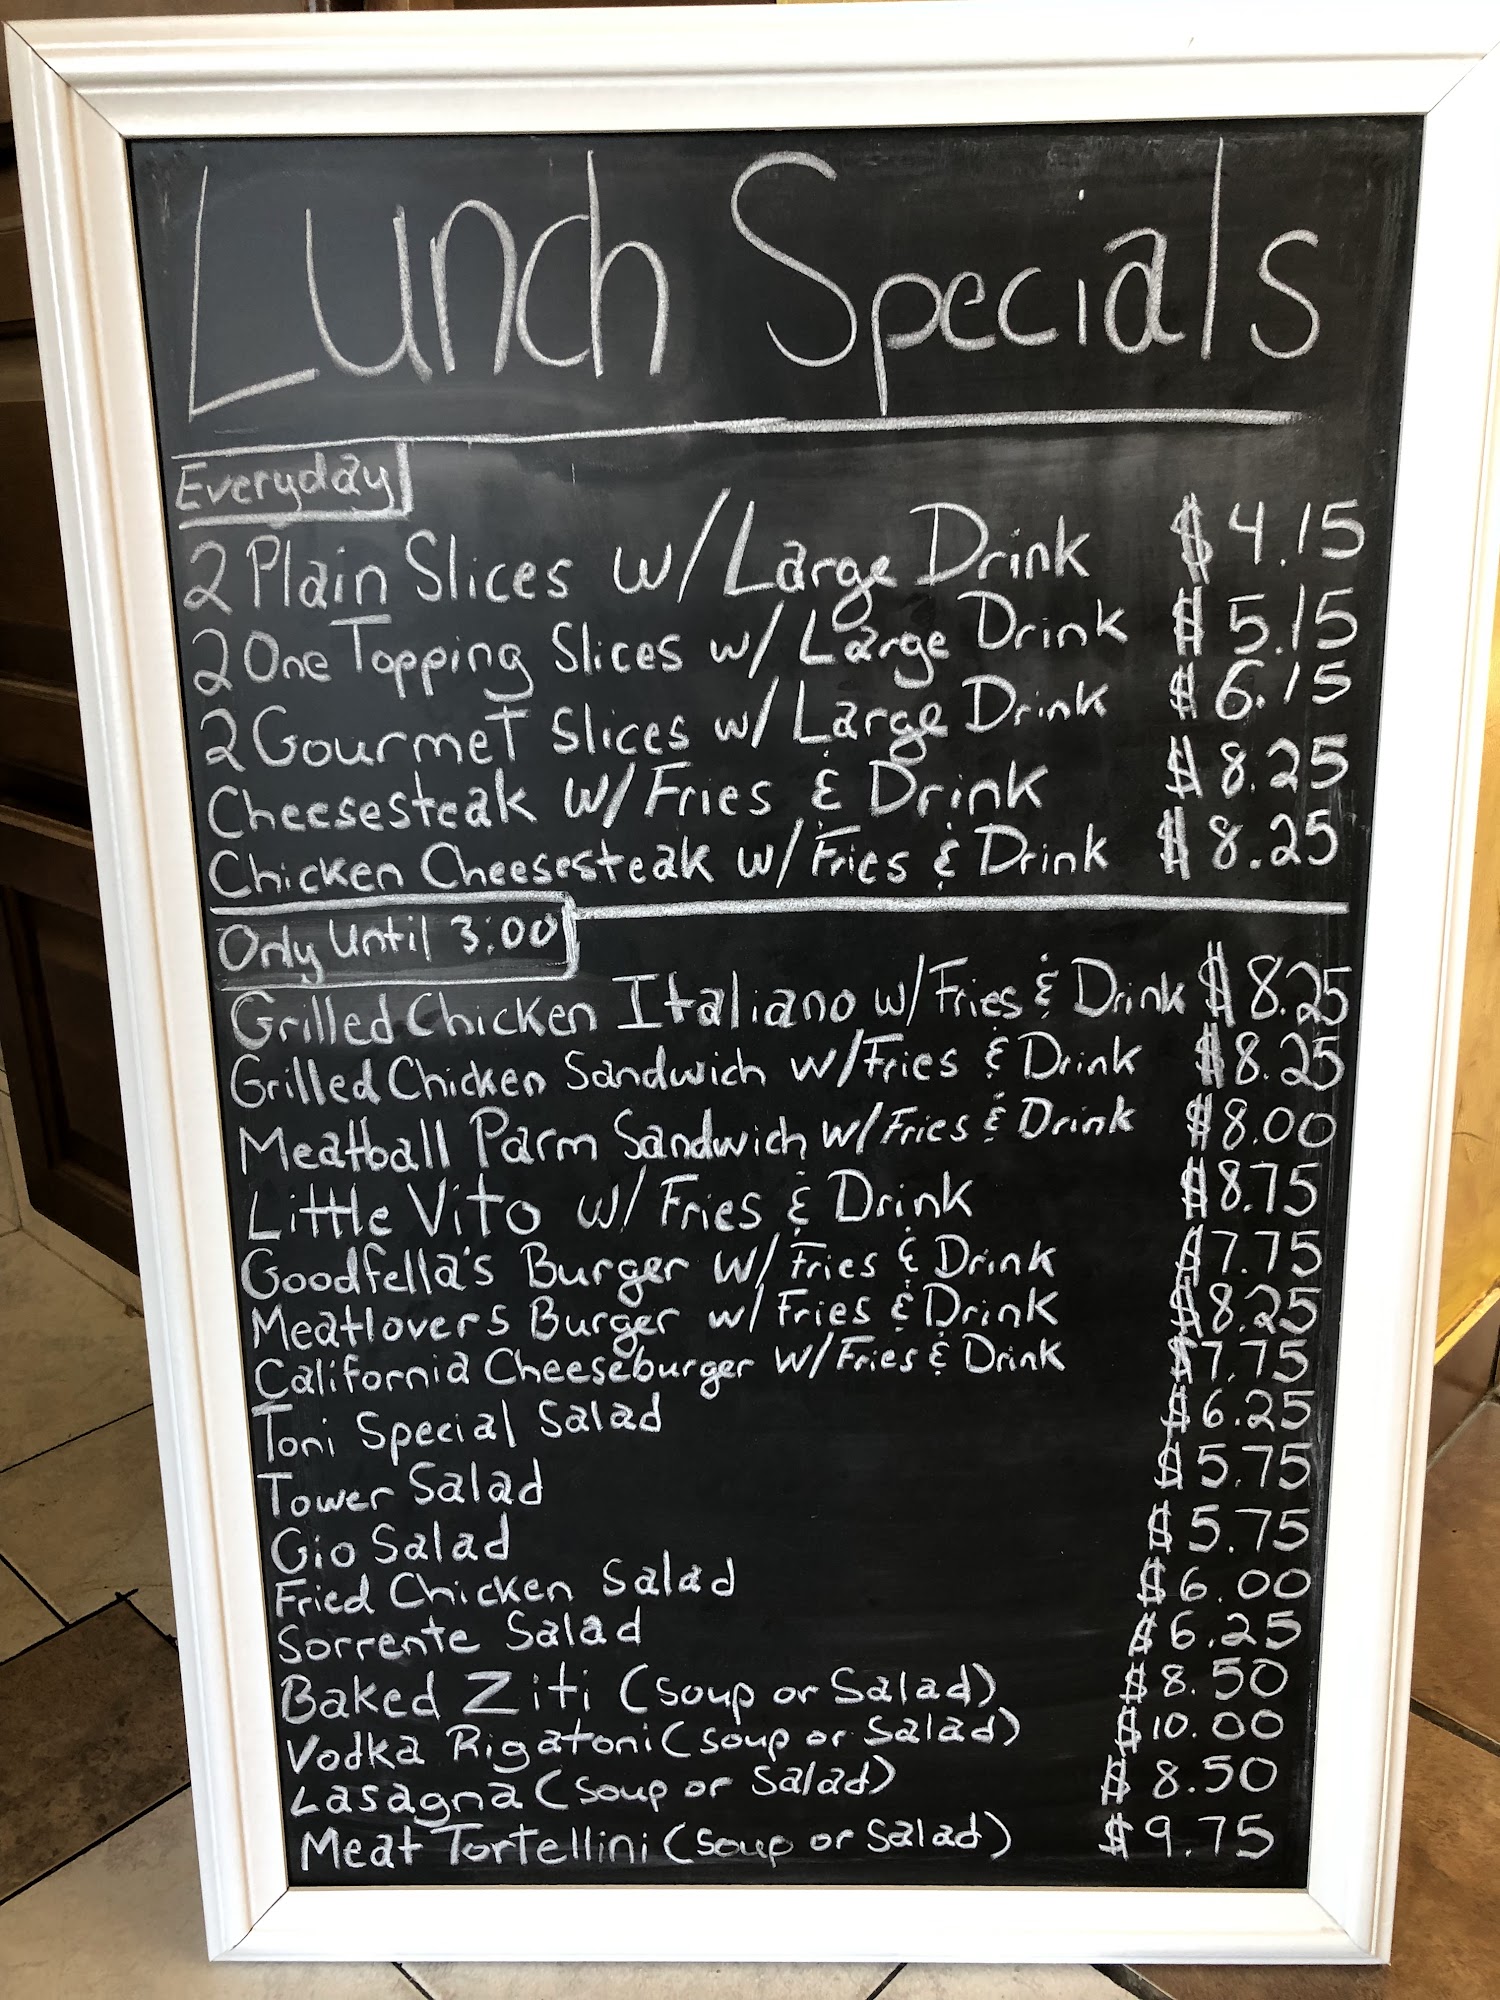 Lunch Specials
Everyday
2 Plain Slices w/ Large Drink $4.15
2 One Topping Slices w/ Large Drink $5.15
2 Gourmet Slices w/ Large Drink $6.15
Cheesesteak w/ Fries & Drink $8.25
Chicken Cheesesteak w/ Fries & Drink $8.25
Only Until 3:00
Grilled Chicken Italiano w/ Fries & Drink $8.25
Grilled Chicken Sandwich w/ Fries & Drink $8.25
Meatball Parm Sandwich w/ Fries & Drink $8.00
Little Vito w/ Fries & Drink $8.75
Goodfella's Burger w/ Fries & Drink $7.75
Meatlovers Burger w/ Fries & Drink $8.25
California Cheeseburger w/ Fries & Drink $7.75
Toni Special Salad $6.25
Tower Salad $5.75
Gio Salad $5.75
Fried Chicken Salad $6.00
Sorrente Salad $6.25
Baked Ziti (soup or Salad) $8.50
Vodka Rigatoni (soup or Salad) $10.00
Lasagna (soup or Salad) $8.50
Meat Tortellini (soup or Salad) $9.75